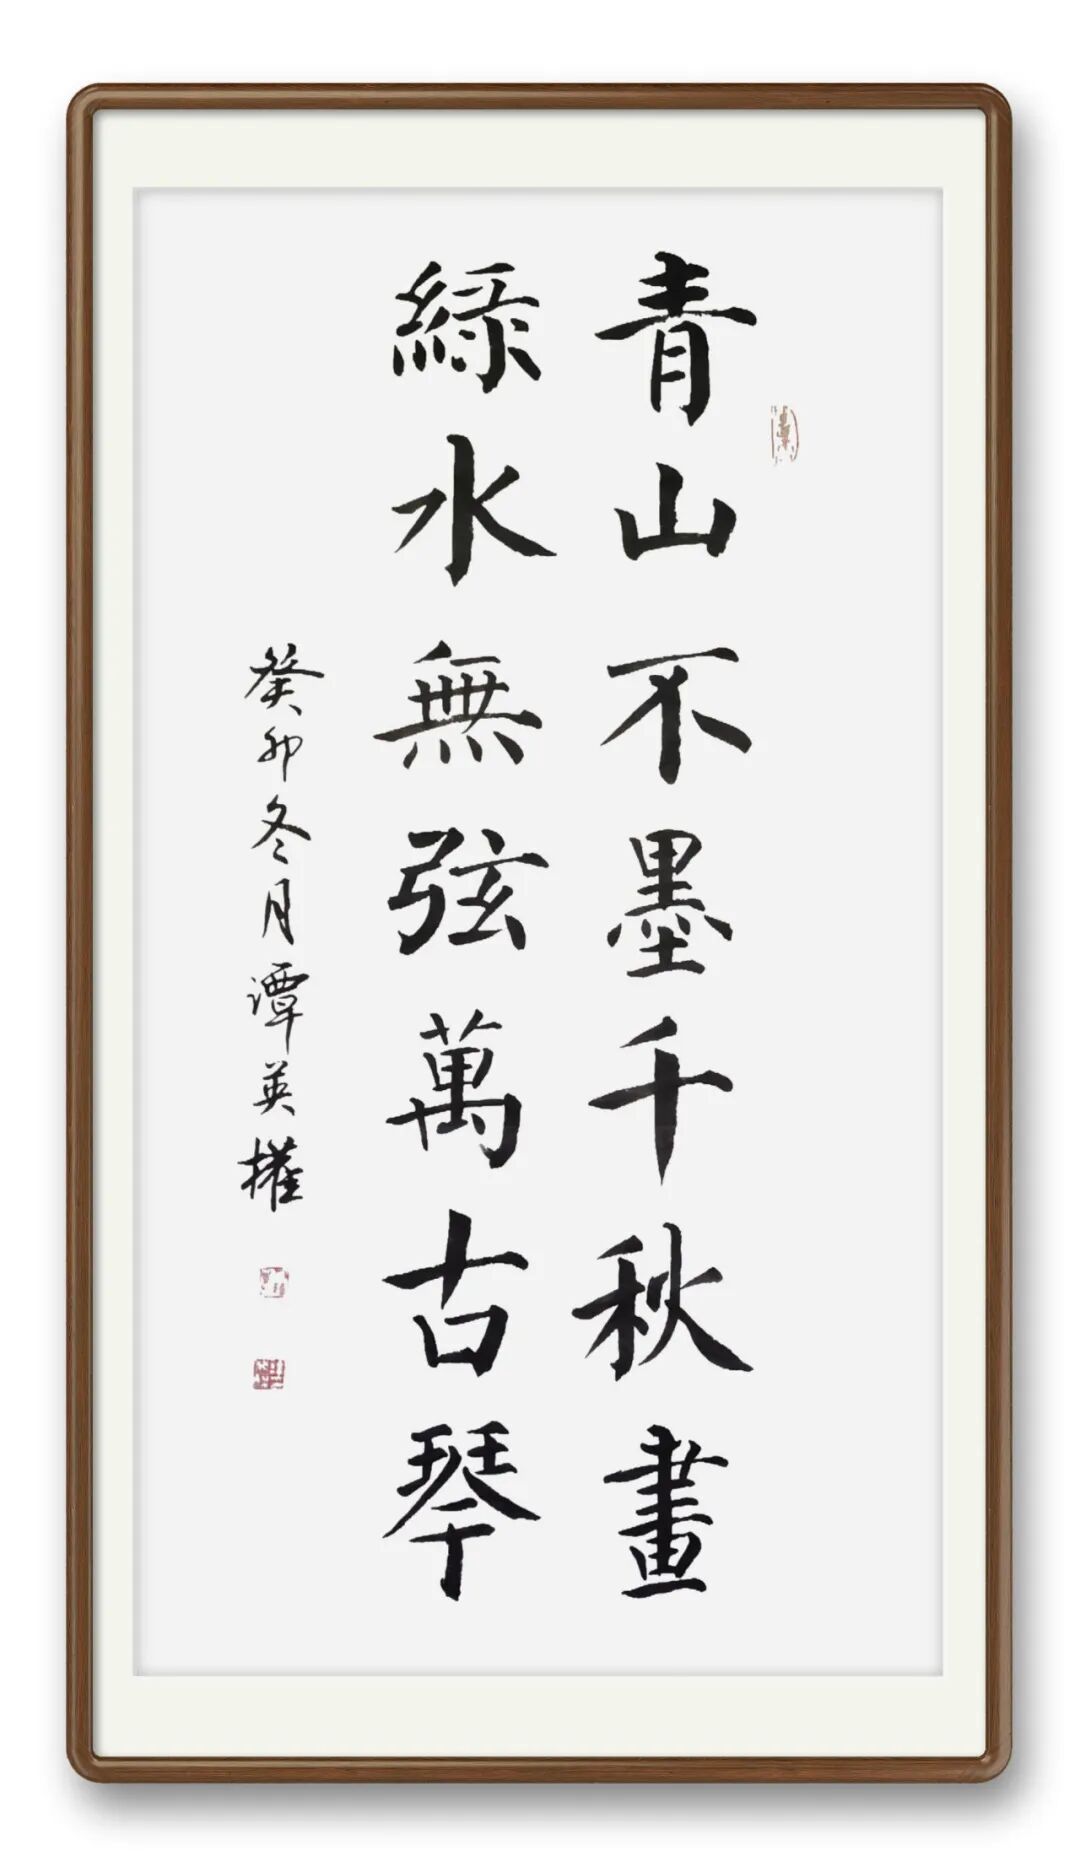 青山不墨千秋畫
綠水無弦萬古琴
癸卯冬月譚英權